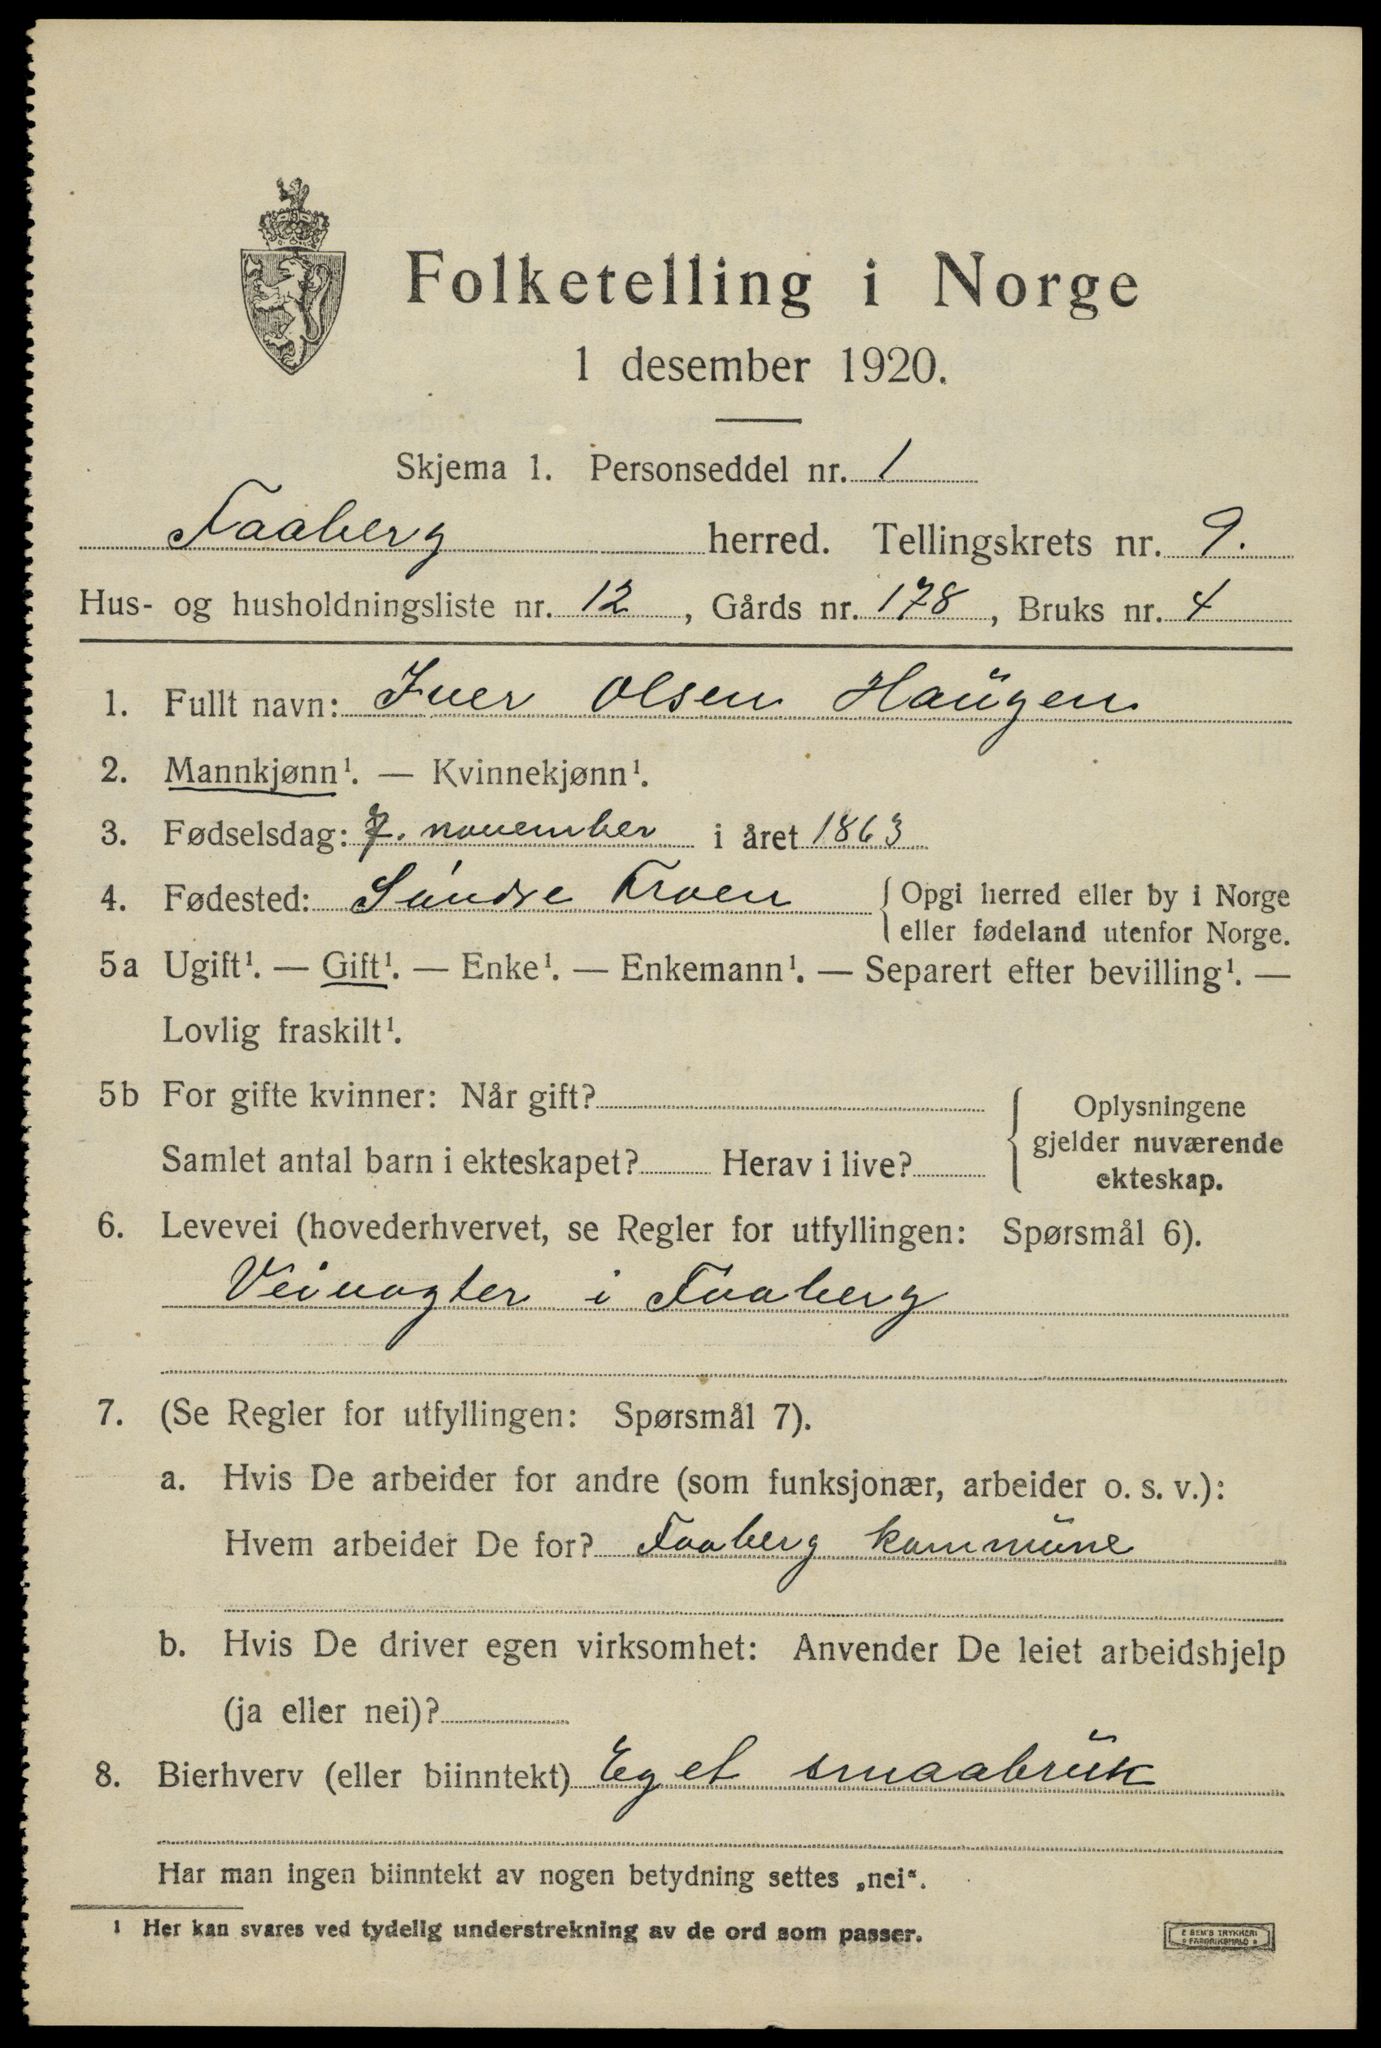 Folketelling i Norge
1 desember 1920.
Skjema 1. Personseddel nr. 1
Faaberg herred. Tellingskrets nr. 9.
Hus- og husholdningsliste nr. 12, Gårds nr. 178, Bruks nr. 4
1. Fullt navn: Iver Olsen Haugen
2. Mannkjønn¹. — Kvinnekjønn¹.
3. Fødselsdag: 7. november i året 1863
4. Fødested: Søndre Froen { Opgi herred eller by i Norge
eller fødeland utenfor Norge.
5a Ugift¹. — Gift¹. — Enke¹. — Enkemann¹. — Separert efter bevilling¹. —
Lovlig fraskilt¹.
5b For gifte kvinner: Når gift? 
Samlet antal barn i ekteskapet? Herav i live?
Oplysningene
gjelder nuværende
ekteskap.
6. Levevei (hovederhvervet, se Regler for utfyllingen: Spørsmål 6).
Veivogter i Faaberg
7. (Se Regler for utfyllingen: Spørsmål 7).
a. Hvis De arbeider for andre (som funksjonær, arbeider o. s. v.):
Hvem arbeider De for? Faaberg kommune
b. Hvis De driver egen virksomhet: Anvender De leiet arbeidshjelp
(ja eller nei)?
8. Bierhverv (eller biinntekt) Eget smaabruk
Har man ingen biinntekt av nogen betydning settes „nei“.
1 Her kan svares ved tydelig understrekning av de ord som passer.